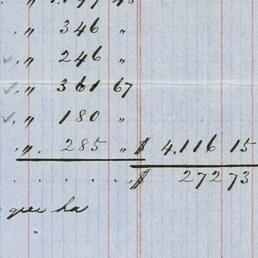 " 346 "
✓ " 246 "
✓ " 361 67
✓ " 180 "
" 285 " $ 4.116 15
. . . . . $ 272 73
que ha